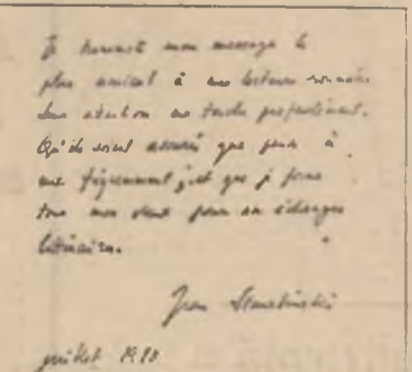 Je transmets mon message le
plus amical à mes lecteurs roumains
dont l'attention me touche profondément.
Qu'ils soient assurés que je pense à
eux fréquemment, et que je forme
tous mes vœux pour nos échanges
littéraires.
Jean Starobinski
juillet 1980